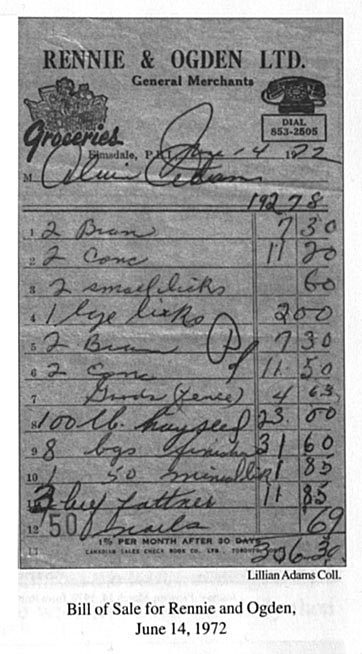 RENNIE & OGDEN LTD.
General Merchants
Groceries
DIAL
853-2505
Elmsdale, P.E.I. June 14 1972
M Adams
192 78
1 2 Bran 7 30
2 2 Conc 11 20
3 2 small licks 60
4 1 lge licks 2 00
5 2 Bran 7 30
6 2 Conc 11 50
7 Goods (Fence) 4 63
8 100 lb. hayseed 23 00
9 8 bgs finisher 31 60
10 1 50 mineral 1 85
3 fattner 11 85
12 50 nails 69
1½% PER MONTH AFTER 30 DAYS
13 306.30
CANADIAN SALES CHECK BOOK CO. LTD., TORONTO
Lillian Adams Coll.
Bill of Sale for Rennie and Ogden,
June 14, 1972